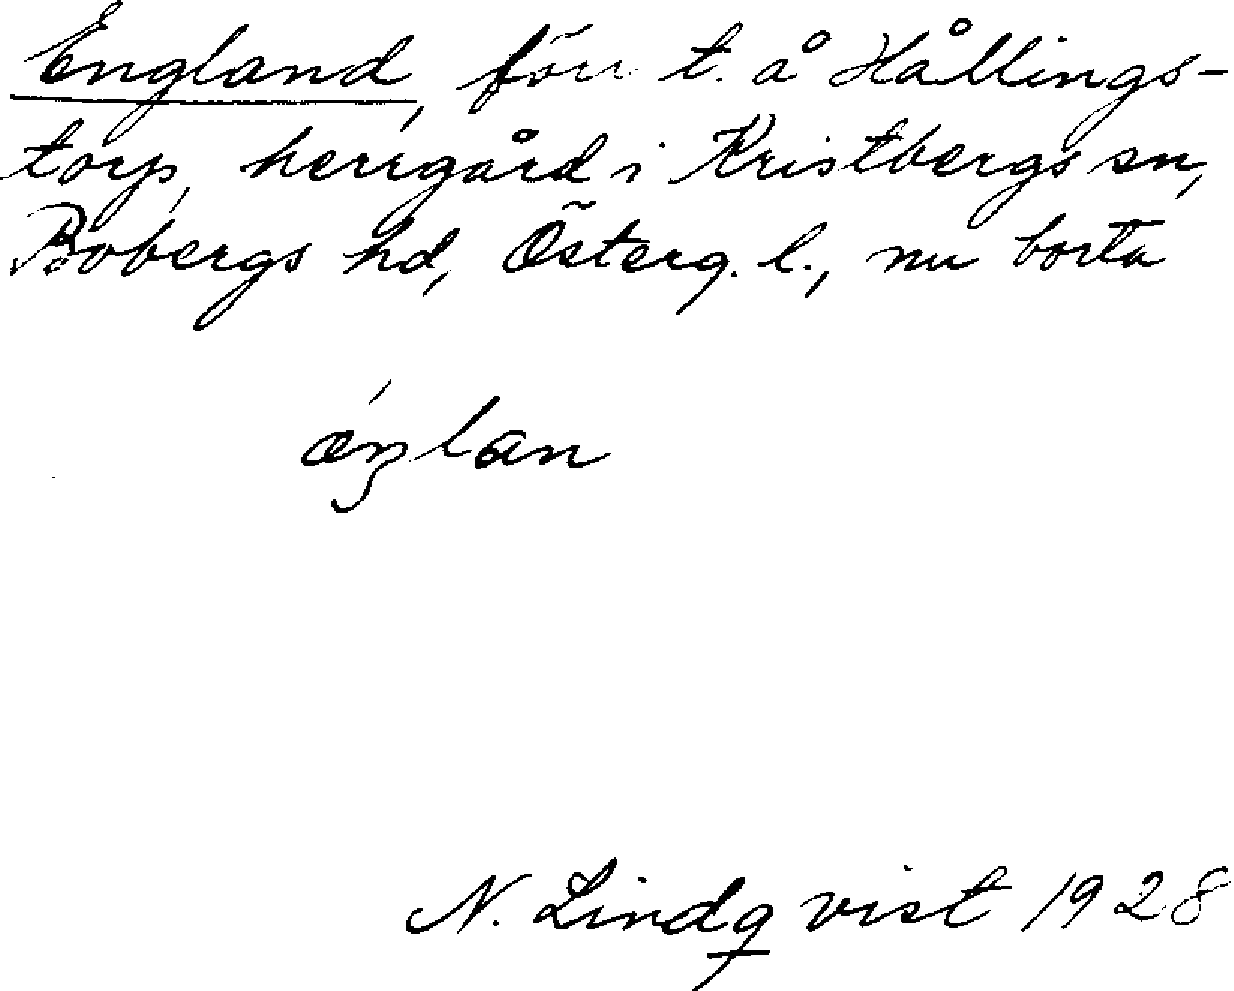 England, förr t. å Hållings-
torp, herrgård i Kristbergs sn,
Bobergs hd, Österg. l., nu borta
ǽŋlan
N. Lindqvist 1928